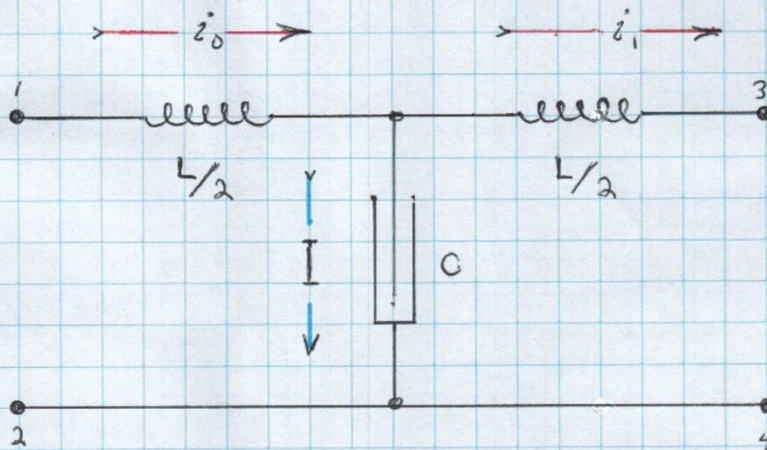 i₀ i₁
1 3
L/2 L/2
I C
2 4